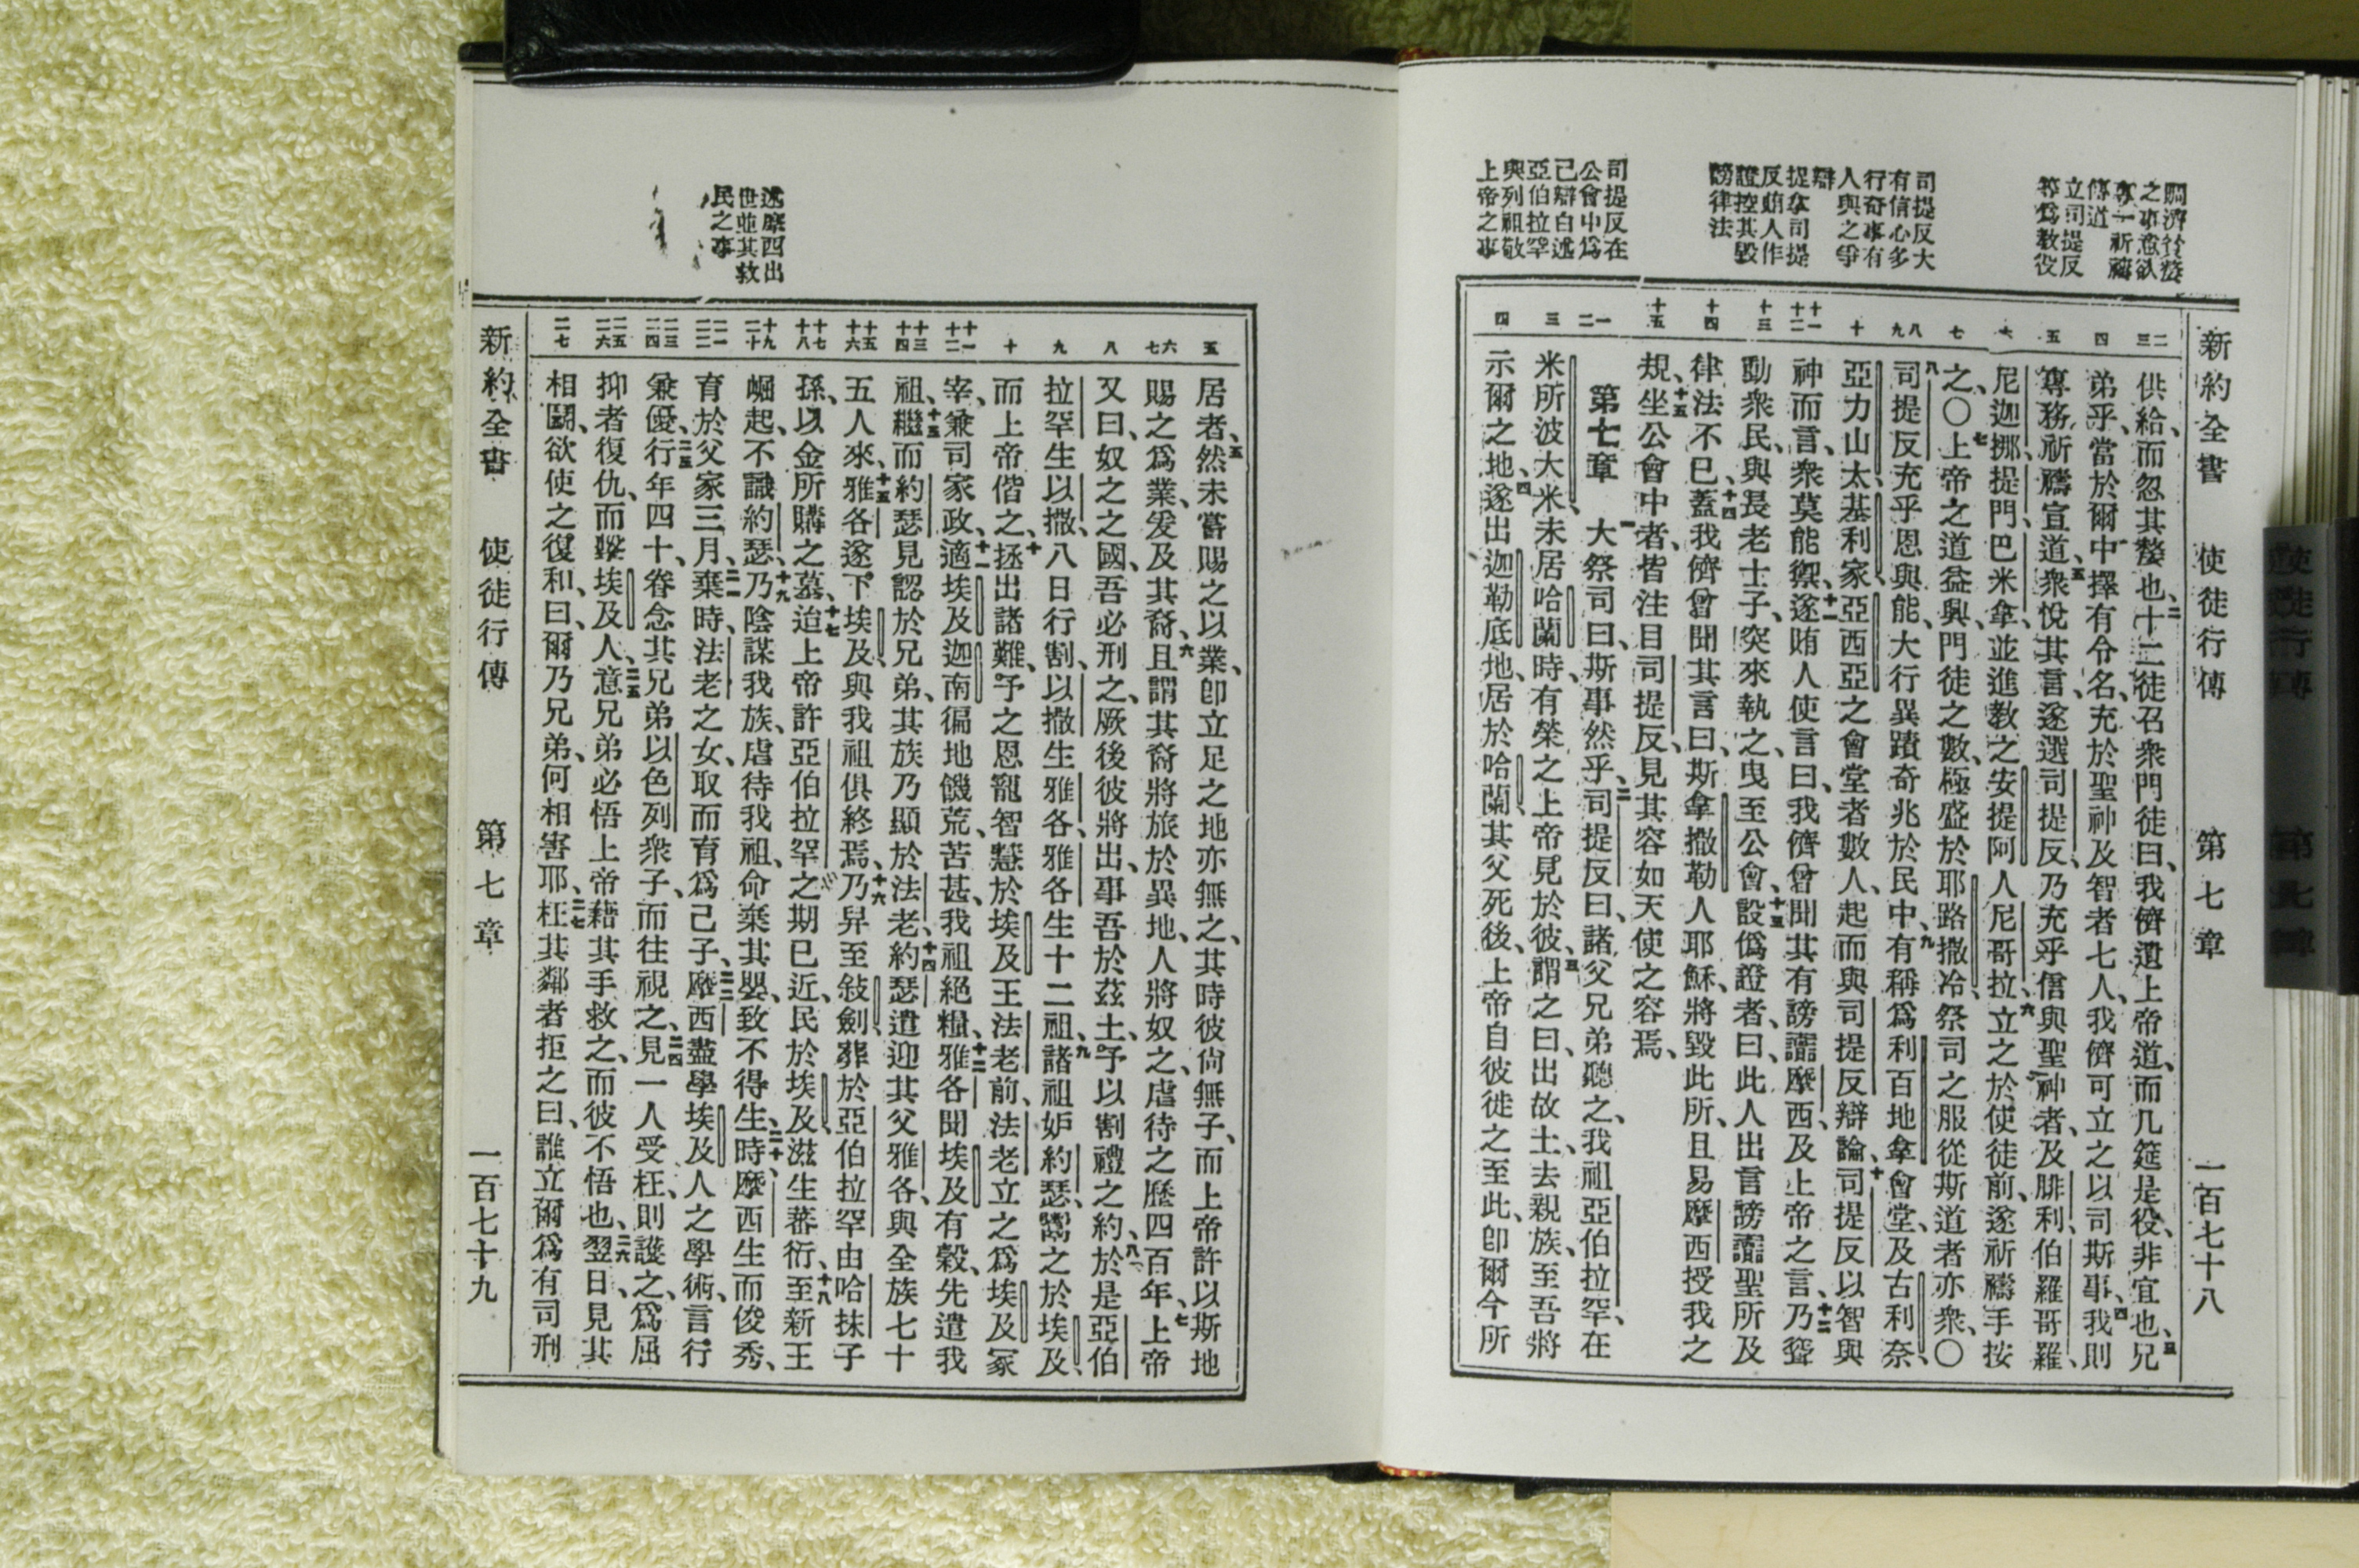 新約全書 使徒行傳 第七章 一百七十八
賙濟貧嫠
之事意欲
專一祈禱
傳道
立司提反
等爲教役
司提反大
有信心多
行奇事有
人與之爭
辯
捉拿司提
反賄人作
證控其毀
謗律法
司提反在
公會中爲
己辯白述
亞伯拉罕
與列祖敬
上帝之事
二三 供給、而忽其嫠也、二十二徒召衆門徒曰、我儕遺上帝道、而几筵是役、非宜也、三兄
四 弟乎、當於爾中擇有令名、充於聖神及智者七人、我儕可立之以司斯事、四我則
五 專務祈禱宣道、五衆悅其言、遂選司提反、乃充乎信與聖神者、及腓利、伯羅哥羅、
六 尼迦挪、提門、巴米拿、並進教之安提阿人尼哥拉、六立之於使徒前、遂祈禱手按
七 之、〇七上帝之道益興、門徒之數、極盛於耶路撒冷、祭司之服從斯道者亦衆、〇
八九 八司提反充乎恩與能、大行異蹟奇兆於民中、九有稱爲利百地拿會堂、及古利奈、
十 亞力山太、基利家、亞西亞之會堂者數人、起而與司提反辯論、十司提反以智與
十一十二 神而言、衆莫能禦、十一遂賄人使言曰、我儕曾聞其有謗讟摩西、及上帝之言、十二乃聳
十三 動衆民、與長老士子、突來執之、曳至公會、十三設僞證者、曰、此人出言謗讟聖所及
十四 律法不已、十四蓋我儕曾聞其言曰、斯拿撒勒人耶穌、將毀此所、且易摩西授我之
十五 規、十五坐公會中者、皆注目司提反、見其容如天使之容焉、
一二 第七章 一大祭司曰、斯事然乎、二司提反曰、諸父兄弟聽之、我祖亞伯拉罕、在
三 米所波大米、未居哈蘭時、有榮之上帝見於彼、三謂之曰、出故土、去親族、至吾將
四 示爾之地、四遂出迦勒底地、居於哈蘭、其父死後、上帝自彼徙之至此、卽爾今所
述摩西出
世並其救
民之事
五 居者、五然未嘗賜之以業、卽立足之地亦無之、其時彼尙無子、而上帝許以斯地
六七 賜之爲業、爰及其裔、六且謂其裔將旅於異地、人將奴之、虐待之歷四百年、七上帝
八 又曰、奴之之國、吾必刑之、厥後彼將出、事吾於茲土、八予以割禮之約、於是亞伯
九 拉罕生以撒、八日行割、以撒生雅各、雅各生十二祖、九諸祖妒約瑟、鬻之於埃及、
十 而上帝偕之、十拯出諸難、予之恩寵智慧於埃及王法老前、法老立之爲埃及冢
十一十二 宰、兼司家政、十一適埃及迦南徧地饑荒、苦甚、我祖絕糧、十二雅各聞埃及有穀、先遣我
十三十四 祖、十三繼而約瑟見認於兄弟、其族乃顯於法老、十四約瑟遣迎其父雅各、與全族七十
十五十六 五人來、十五雅各遂下埃及、與我祖俱終焉、十六乃舁至敍劍、葬於亞伯拉罕由哈抹子
十七十八 孫、以金所購之墓、十七迨上帝許亞伯拉罕之期已近、民於埃及滋生蕃衍、十八至新王
十九二十 崛起、不識約瑟、十九乃陰謀我族、虐待我祖、命棄其嬰、致不得生、二十時、摩西生而俊秀、
二一二二 育於父家三月、二一棄時、法老之女、取而育爲己子、二二摩西盡學埃及人之學術、言行
二三二四 兼優、二三行年四十、眷念其兄弟以色列衆子、而往視之、二四見一人受枉、則護之、爲屈
二五二六 抑者復仇、而擊埃及人、二五意兄弟必悟上帝藉其手救之、而彼不悟也、二六翌日、見其
二七 相鬭、欲使之復和、曰、爾乃兄弟、何相害耶、二七枉其鄰者拒之曰、誰立爾爲有司刑
新約全書 使徒行傳 第七章 一百七十九